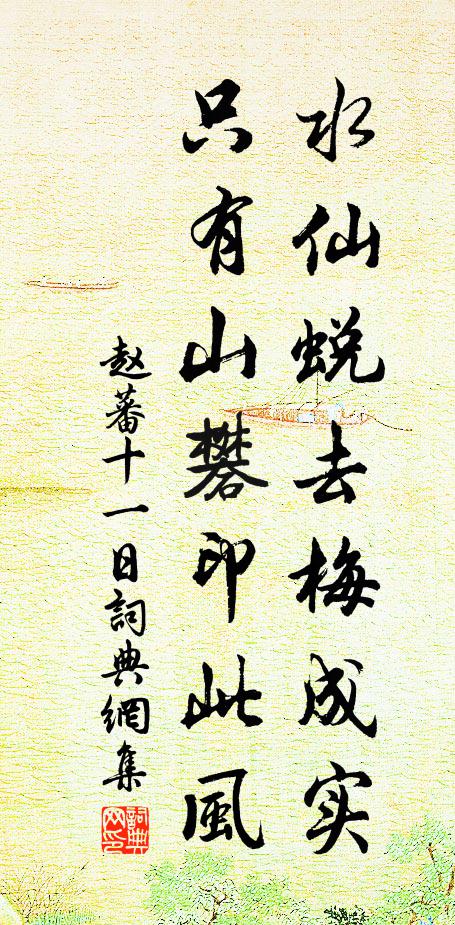 水仙蜕去梅成实
只有山礬印此風
赵蕃十一日詞典網集
詞典网印